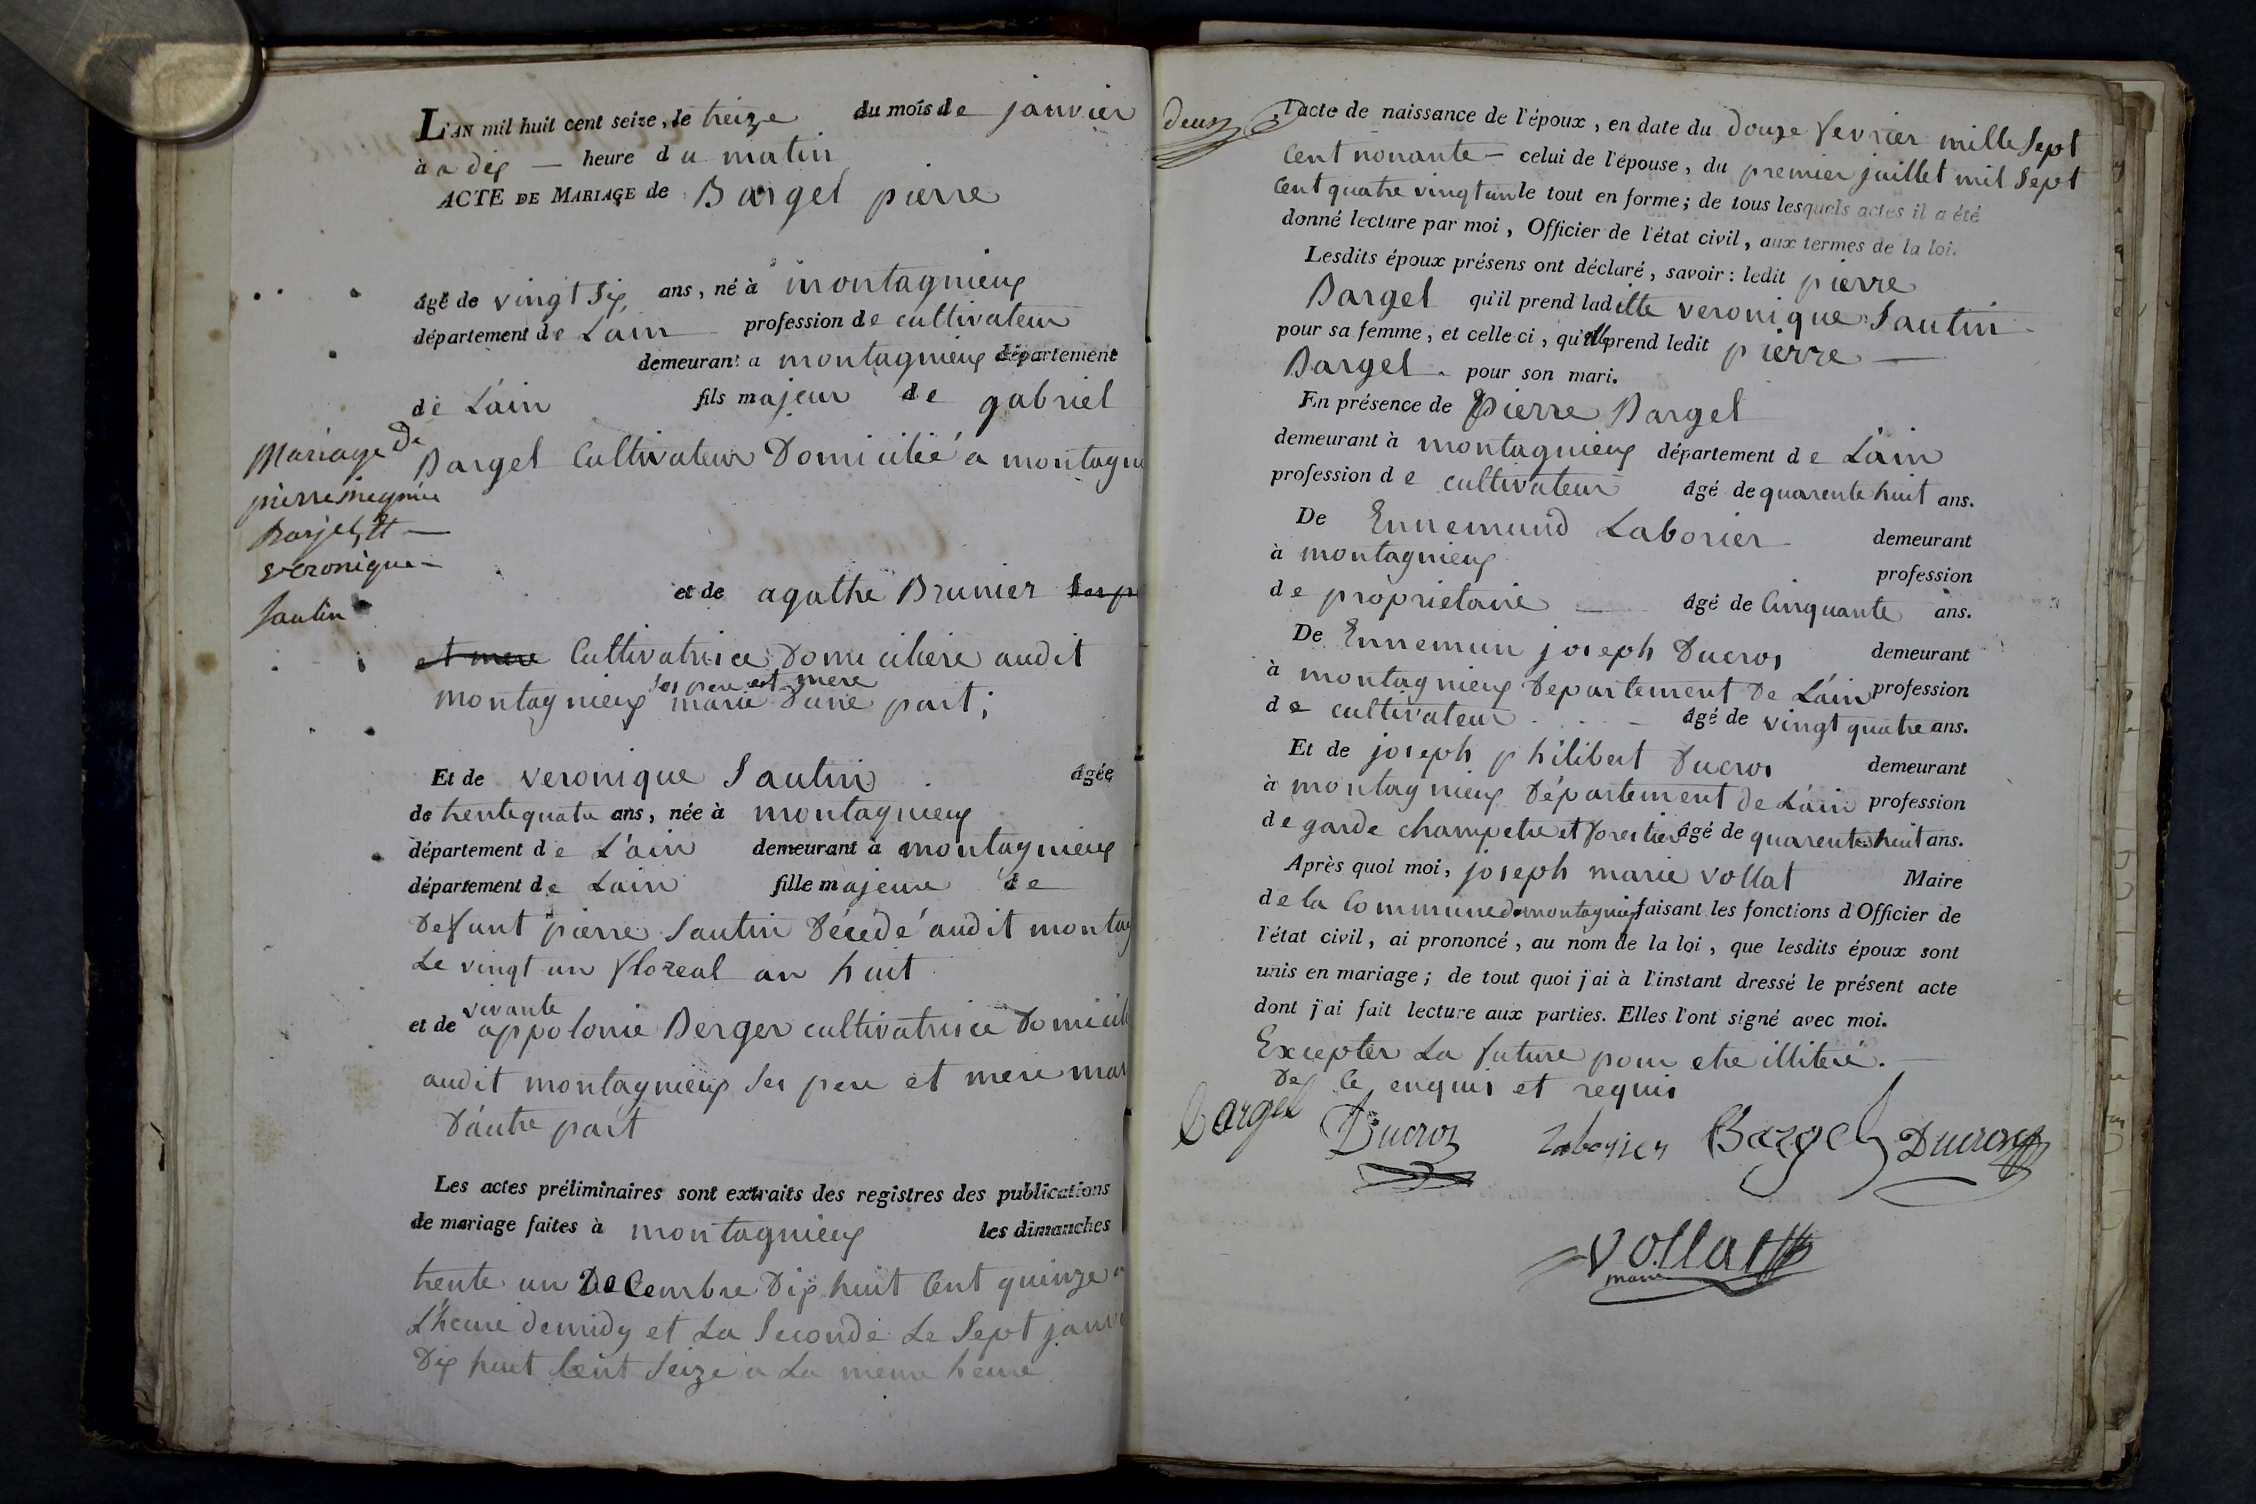 L'AN mil huit cent seize, le treize du mois de janvier
à a dix — heure du matin
ACTE DE MARIAGE de Bargel pierre
âgé de vingt six ans, né à montagnieux
département de Lain profession de cultivateur
demeurant a montagnieux département
de L'ain fils majeur de gabriel
Bargel Cultivateur Domicilié a montagni
Mariage De
pierre
Barjel, Et —
veronique —
Sautin
et de agathe Brunier
et mere Cultivatrice Domiciliere audit
ses pere et mere
montagnieux marié D'une part;
Et de veronique Sautin âgée
de trentequatre ans, née à montagnieux
département de L'ain demeurant à montagnieux
département de Lain fille majeure de
Defunt pierre Sautin Décédé audit montag
Le vingt un floreal an huit
vivante
et de appolonie Berger cultivatrice Domicili
audit montagnieux ses pere et mere mar
D'autre part
Les actes préliminaires sont extraits des registres des publications
de mariage faites à montagnieux les dimanches
trente un Decembre Dix huit Cent quinze a
L'heure demidy et La Seconde Le Sept janvi
Dix huit Cent Seize a La meme heure
deux
l'acte de naissance de l'époux, en date du douze fevrier mille Sept
Cent nonante — celui de l'épouse, du premier juillet mil Sept
Cent quatre vingt un le tout en forme; de tous lesquels actes il a été
donné lecture par moi, Officier de l'état civil, aux termes de la loi.
Lesdits époux présens ont déclaré, savoir: ledit pierre
Bargel qu'il prend laditte veronique Sautin
pour sa femme, et celle ci, qu'elle prend ledit pierre —
Bargel. pour son mari.
En présence de Pierre Bargel
demeurant à montagnieux département de L'ain
profession de cultivateur âgé de quarente huit ans.
De Ennemund Laborier demeurant
à montagnieux profession
de proprietaire — âgé de Cinquante ans.
De Ennemun joseph Ducros demeurant
à montagnieux Departement De L'ain profession
de cultivateur âgé de vingt quatre ans.
Et de joseph philibert Ducros demeurant
à montagnieux Département de L'ain profession
de garde champetre et forestier âgé de quarente huit ans.
Après quoi moi, joseph marie vollat Maire
de la Commune de montagnieux faisant les fonctions d'Officier de
l'état civil, ai prononcé, au nom de la loi, que lesdits époux sont
unis en mariage; de tout quoi j'ai à l'instant dressé le présent acte
dont j'ai fait lecture aux parties. Elles l'ont signé avec moi.
Excepter La future pour etre illiteré. —
De Ce enquis et requis
Bargel Ducros Laborier Bargel Ducros
vollat
maire